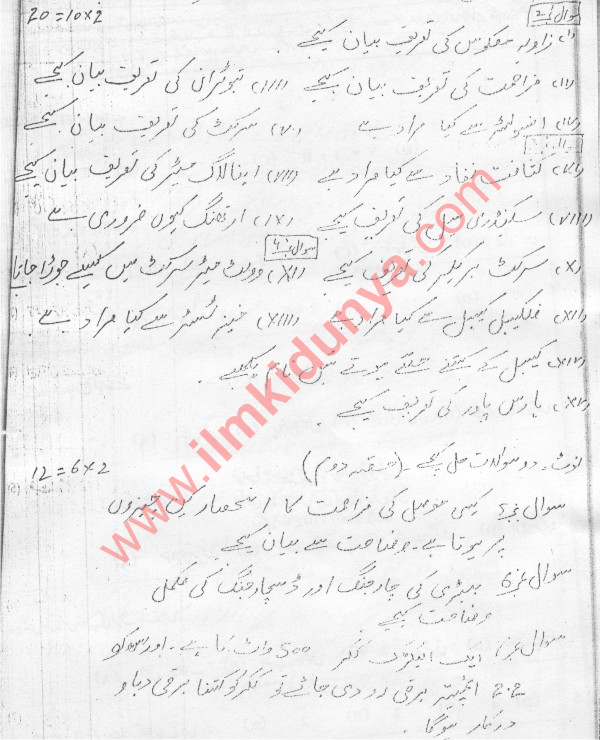 سوال نمبر 2 20=10×2
(i) زاویہ معکوس کی تعریف بیان کیجیے
(ii) مزاحمت کی تعریف بیان کیجیے (iii) نیوٹران کی تعریف بیان کیجیے
(iv) انسولیٹر سے کیا مراد ہے (v) سرکٹ کی تعریف بیان کیجیے
(vi) کثافت نفاذ سے کیا مراد ہے (vii) اینالاگ میٹر کی تعریف بیان کیجیے
(viii) سکینڈری سیل کی تعریف کیجیے (ix) ارتھنگ کیوں ضروری ہے
(x) سرکٹ بریکر کی تعریف کیجیے (xi) وولٹ میٹر سرکٹ میں کیسے جوڑا جاتا
(xii) فلکیبل کیبل سے کیا مراد ہے (xiii) فیز ٹسٹر سے کیا مراد ہے
(xiv) کیبل کے کتنے حصے ہوتے ہیں نام لکھیے
(xv) ہارس پاور کی تعریف کیجیے
نوٹ۔ دو سوالات حل کیجیے (حصہ دوم) 12=6×2
سوال نمبر کسی موصل کی مزاحمت کا انحصار کن چیزوں
پر ہوتا ہے۔ وضاحت سے بیان کیجیے
سوال نمبر 6 بیٹری کی چارجنگ اور ڈسچارجنگ کی مکمل
وضاحت کیجیے
سوال نمبر ایک الیکٹرک ککر 500 واٹ کا ہے۔ اور اسکو
2.2 ایمپیئر برقی رو دی جائے تو ککر کو کتنا برقی دباؤ
درکار ہوگا
www.ilmkidunya.com